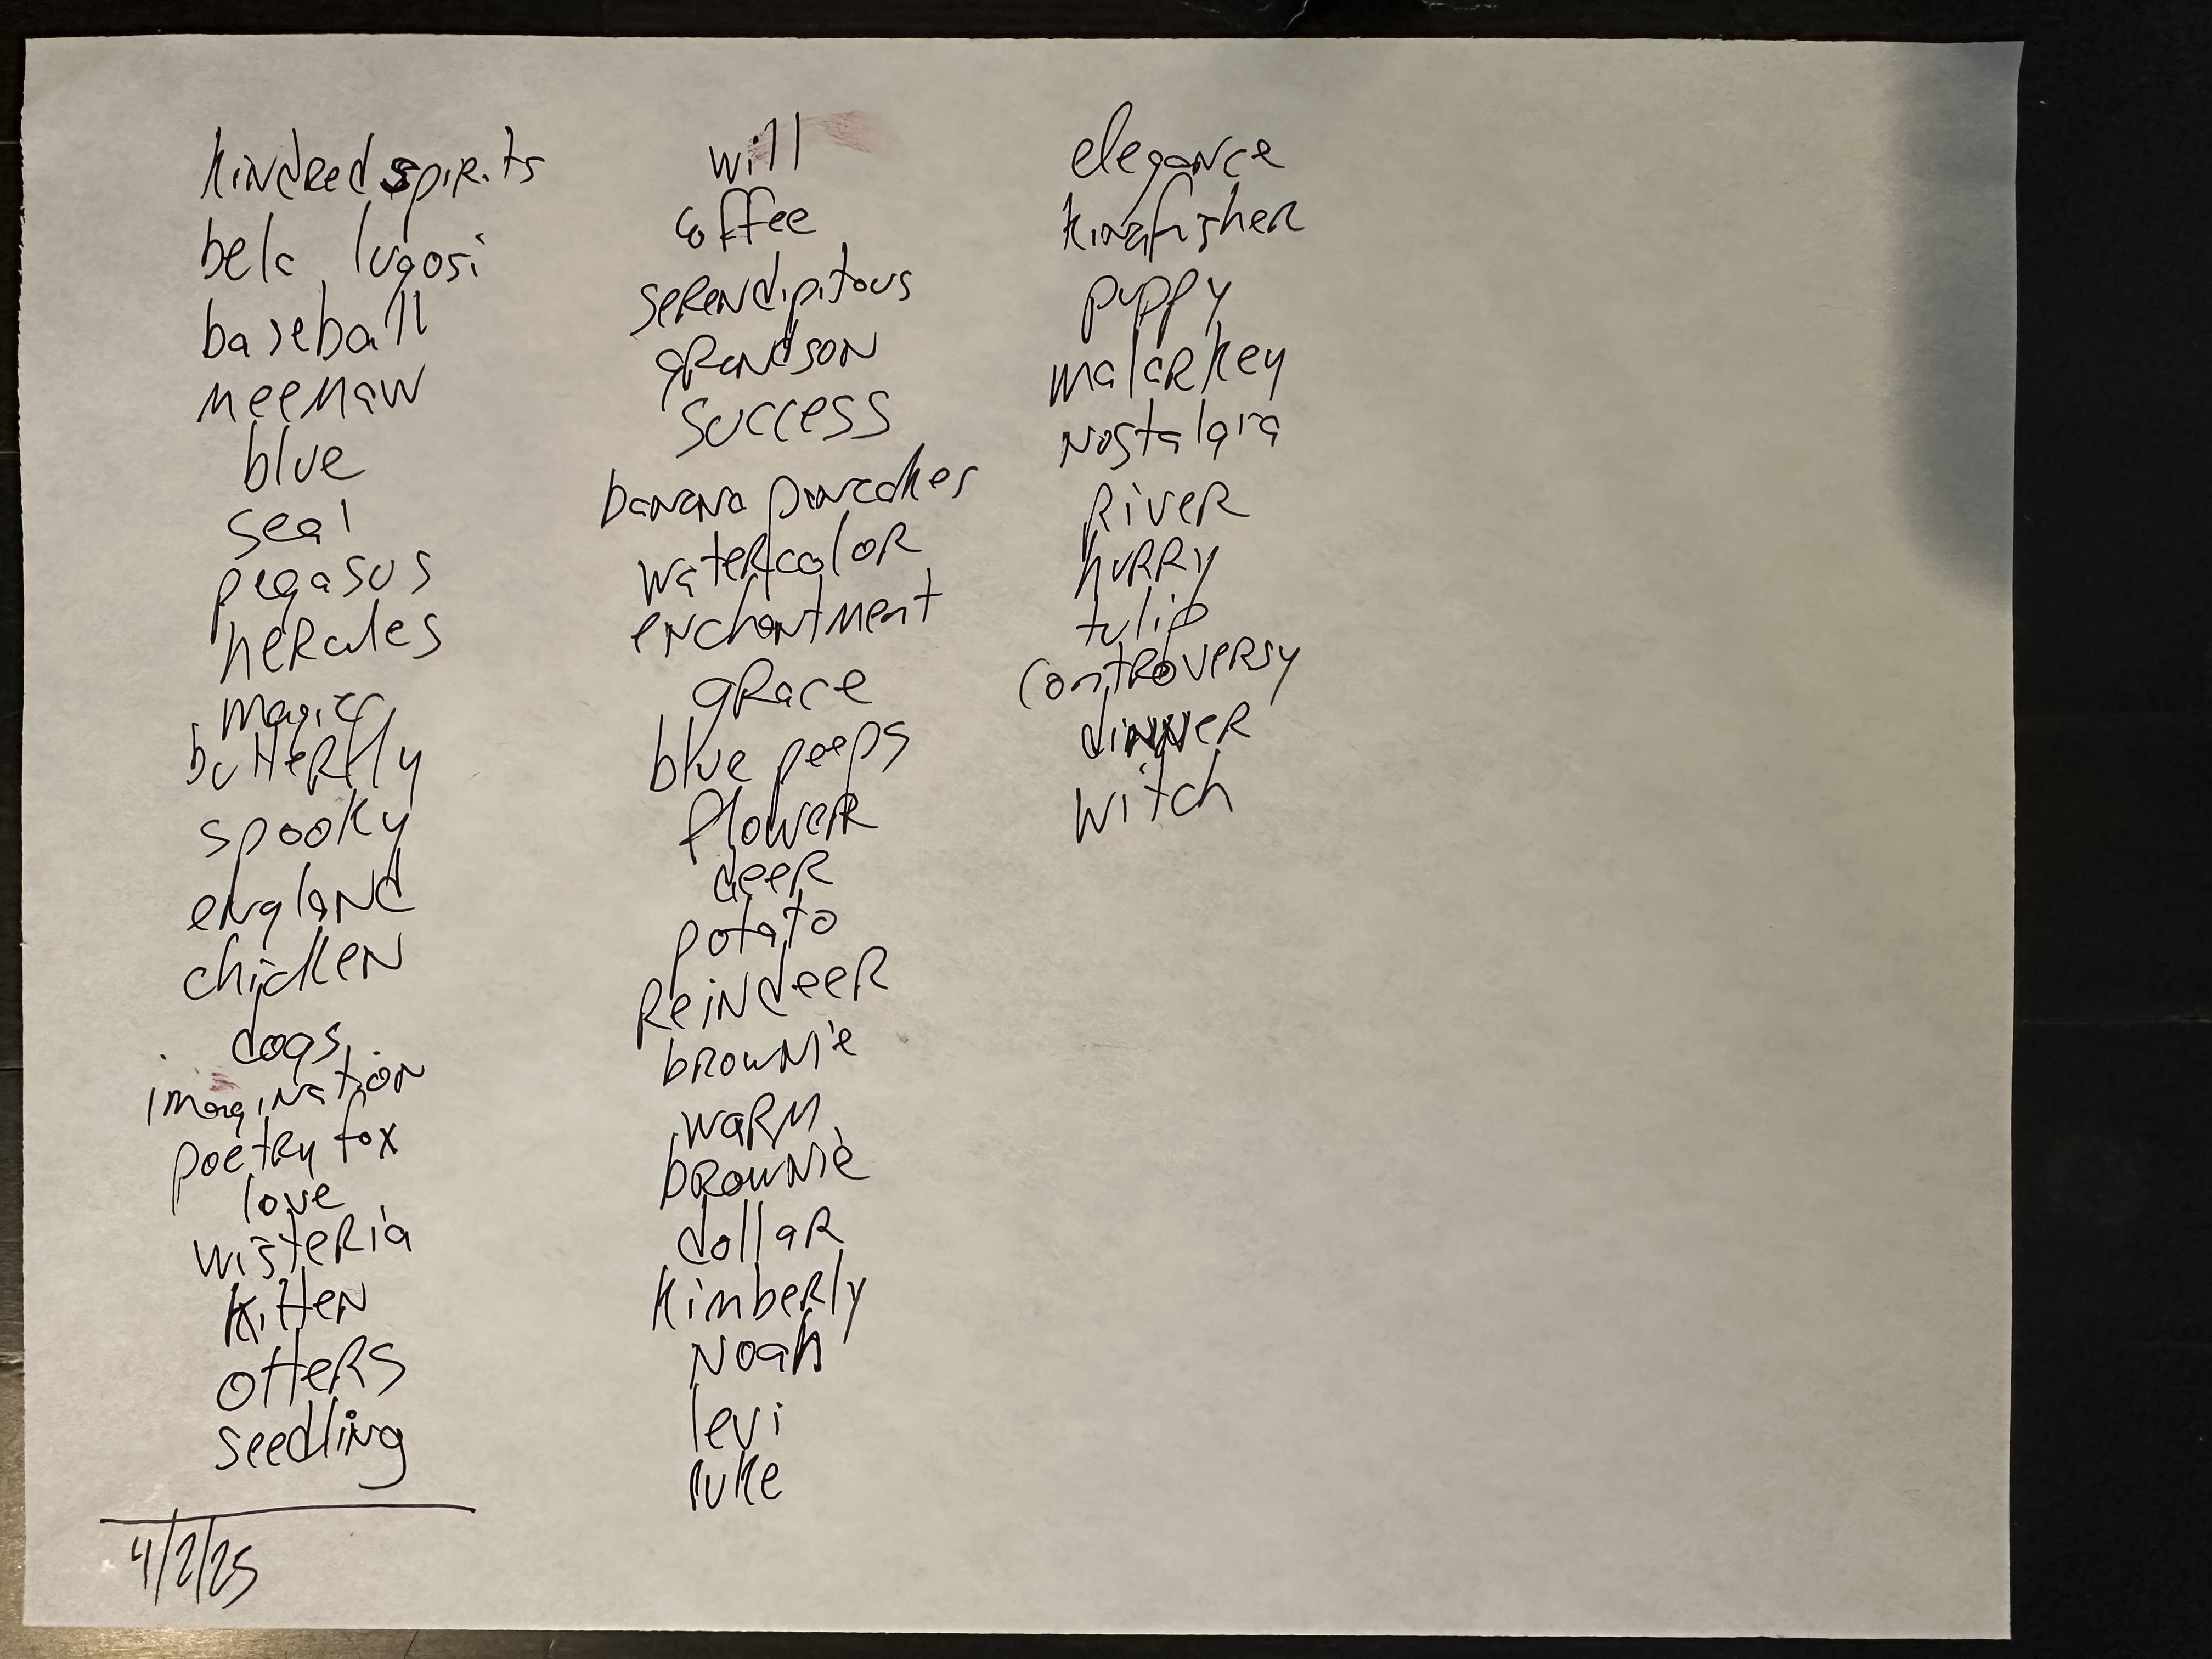 kindred spirits
bela lugosi
baseball
meemaw
blue
seal
pegasus
hercules
magic
butterfly
spooky
england
chicken
dogs
imagination
poetry fox
love
wisteria
kitten
otters
seedling
4/2/25
will
coffee
serendipitous
grandson
success
banana pancakes
watercolor
enchantment
grace
blue peeps
flower
deer
potato
Reindeer
brownie
warm
brownie
dollar
kimberly
Noah
levi
luke
elegance
kingfisher
puppy
malarkey
nostalgia
River
hurry
tulip
controversy
dinner
witch